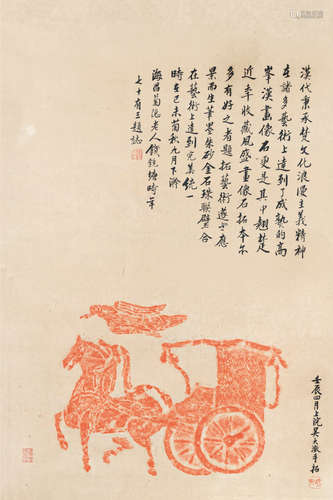 漢代秉承楚文化浪漫主義精神
在諸多藝術上達到了成熟的高
峯漢畫像石更是其中翹楚
近年收藏風盛畫像石拓本尔
多有好之者題拓藝術遂于應
景而生筆墨朱砂金石珠聯璧合
在藝術上達到完美統一
時在己未菊秋九月下澣
海昌菊泡老人錢鏡塘時年
七十有三題誌
壬辰四月上浣吳大澂手拓